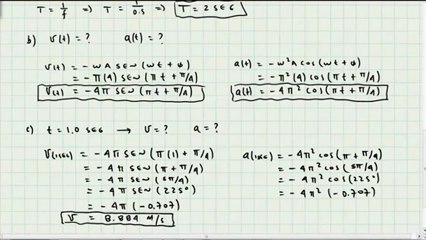 T = 1/f => T = 1/0.5 => T = 2 SEG
b) v(t) = ? a(t) = ?
v(t) = -wA SEN (wt + φ)
= -π(4) SEN (πt + π/4)
v(t) = -4π SEN (πt + π/4)
a(t) = -w²A cos (wt + φ)
= -π²(4) cos (πt + π/4)
a(t) = -4π² cos (πt + π/4)
c) t = 1.0 SEG → v = ? a = ?
v(1SEG) = -4π SEN (π(1) + π/4)
= -4π SEN (π + π/4)
= -4π SEN (5π/4)
= -4π SEN (225°)
= -4π (-0.707)
v = 8.884 m/s
a(1SEG) = -4π² cos (π + π/4)
= -4π² cos (5π/4)
= -4π² cos (225°)
= -4π² (-0.707)